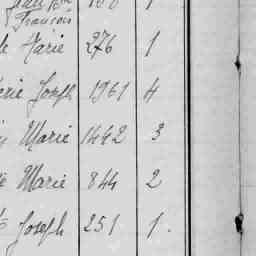 François
Marie 276 1
Joseph 1961 4
Marie 1442 3
Marie 844 2
Joseph 251 1.